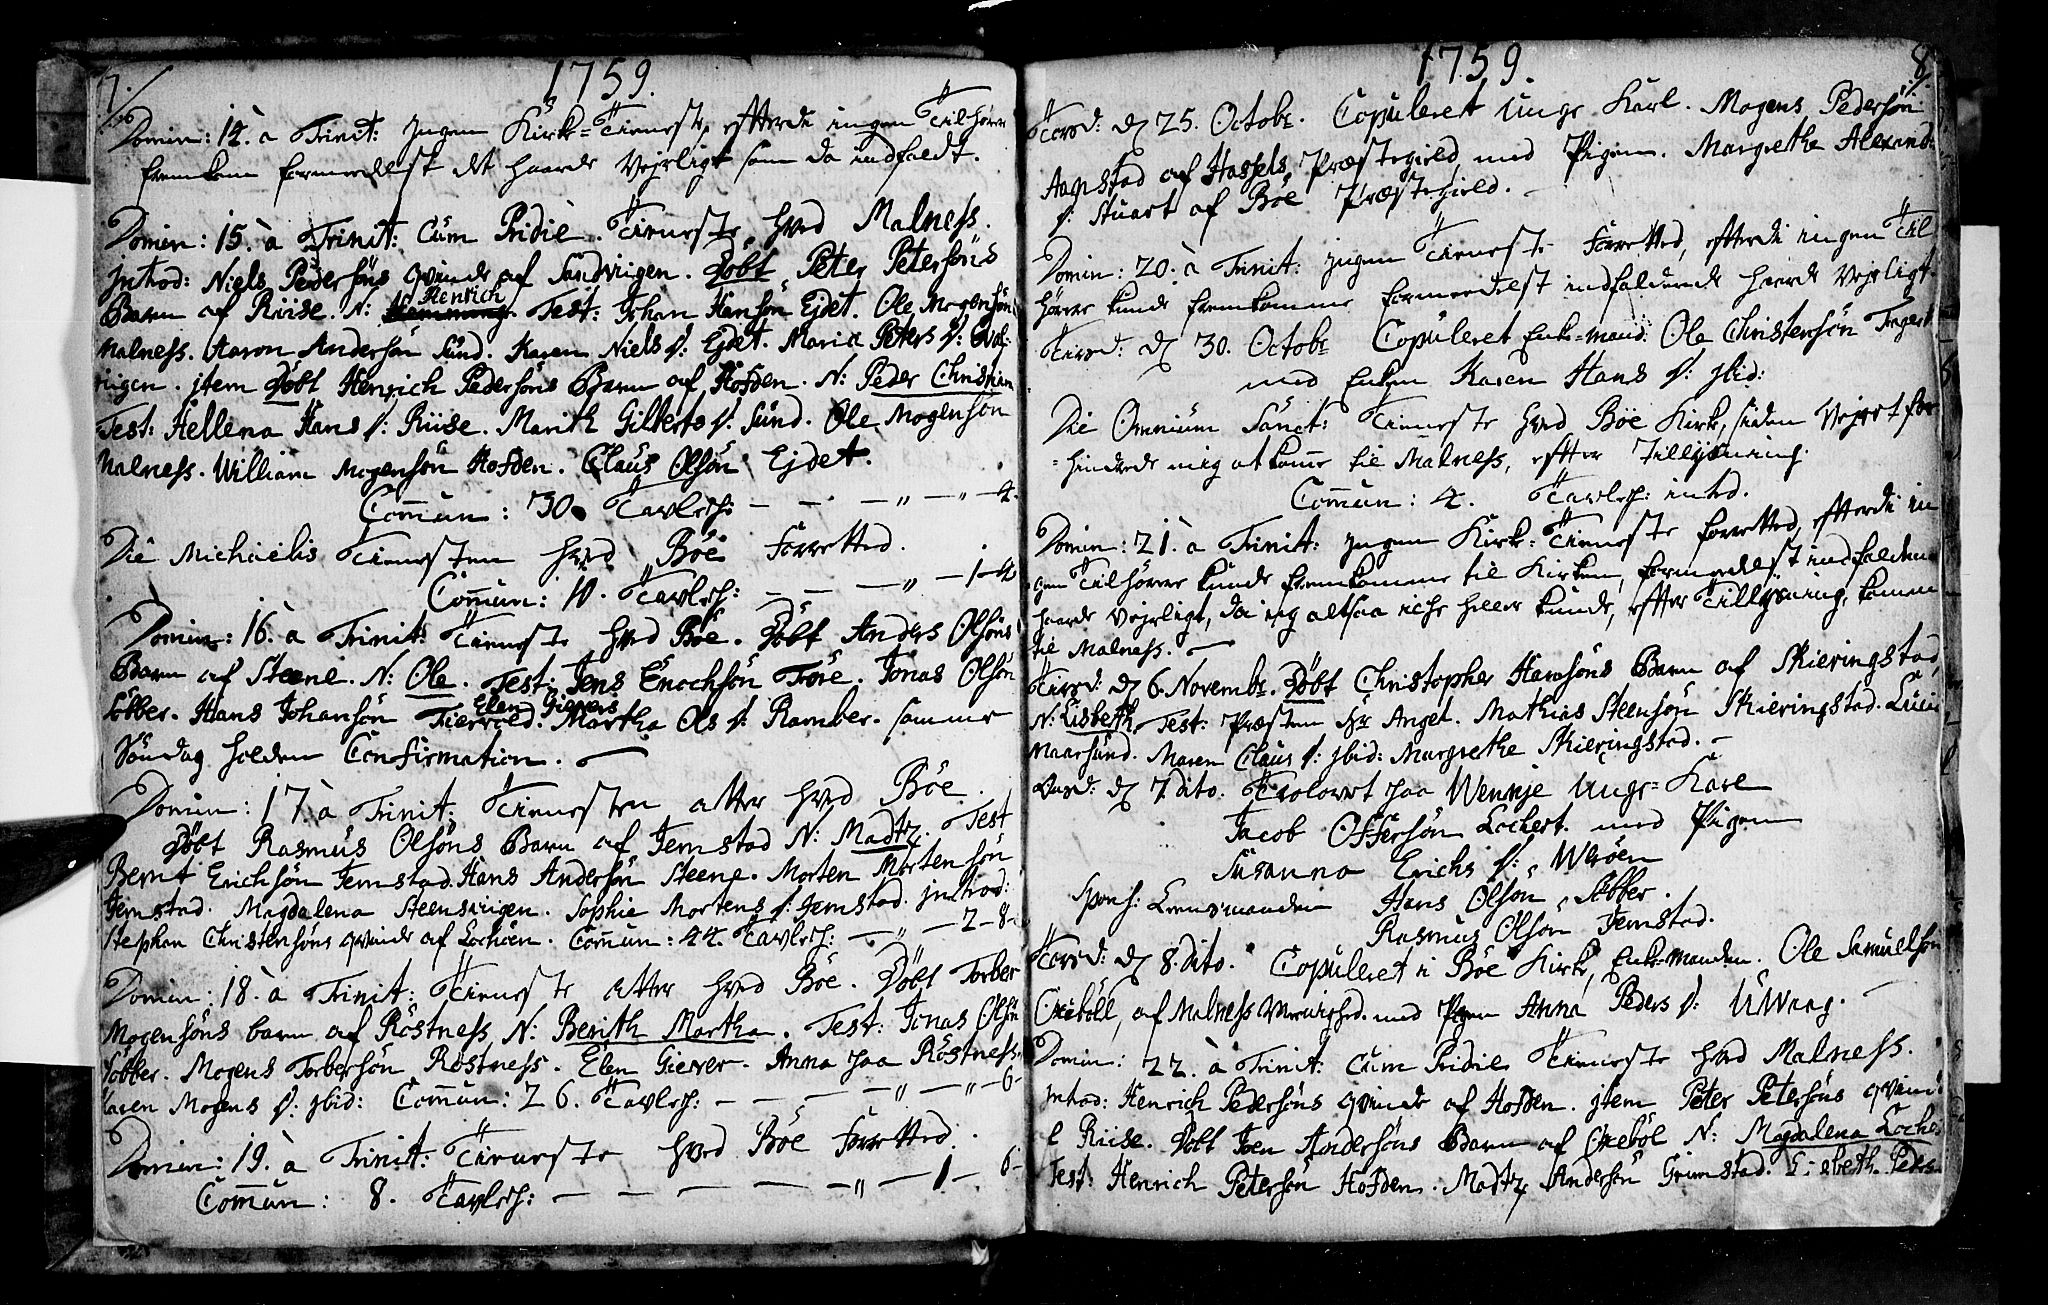 7./
1759.
Domin: 14. a Trinit: Ingen Kirk-Tieneste, efterdi ingen Tilhører
fremkom formedelst det haarde Vejrligt som da indfaldt.
Domin: 15. à Trinit: Cum Pridie. Tieneste hved Malness.
Introd: Niels Pedersøns qvinde af Sandvigen. Døbt Peter Petersøns
Barn af Riise. N: Henrich Test: Johan Hansøn Ejdet. Ole Mogensøn
Malness. Aaron Andersøn Sund. Karen Niels d: Ejdet. Maria Peters d:
vigen. Item Døbt Henrich Pedersøns Barn af Hofden. N: Peder Christian
Test: Hellena Hans d: Riise. Marith Gilberts d: Sund. Ole Mogensøn
Malness. William Mogensøn Hofden. Claus Olsøn Ejdet.
Com̄un: 30. Tavlech: — — — „ — „ — 4.
Die Michaelis Tienesten hved Böe Forretted.
Com̄un: 10. Tavlech: — — — „ — 1 - 4
Domin: 16. a Trinit: Tieneste hved Böe. Døbt Anders Olsøns
Barn af Steene. N: Ole. Test: Jens Enochsøn Tröe. Jonas Olsøn
Løbber. Hans Johansøn Elen Gievers Martha Ols d: Ramber. samme
Søndag holden Confirmation. —
Domin: 17. à Trinit: Tienesten atter hved Böe.
Døbt Rasmus Olsøns Barn af Jemstad N: Madtz. Test
Bernt Erichsøn Jemstad. Hans Andersøn Steene. Morten Mortensøn
Jemstad. Magdalena Steensvigen. Sophie Mortens d: Jemstad. Introd:
Stephan Christensøns qvinde af Lochöen. Com̄un: 44. Tavlech: — „ — 2 - 8 -
Domin: 18. à Trinit: Tieneste atter hved Böe. Døbt Torber
Mogensøns barn af Röstness N: Berith Martha. Test: Jonas Olsøn
Løbber. Mogens Torbersøn Röstness. Elen Giever. Anna paa Röstness.
Karen Mogens d: Ibid: Com̄un: 26. Tavlech: — — — — „ — „ — 6 -
Domin: 19. à Trinit: Tieneste hved Böe Forretted.
Com̄un: 8. Tavlech: — — — — — „ — 1 - 6 -
1759.
8.
Torsd: d 25. Octobr. Copuleret Unge Karl. Mogens Pedersøn
af Hassels Præstegield, med Pigen. Margrethe Alexand:
d: Stuart af Böe Præstegield. —
Domin: 20. à Trinit: Ingen Tieneste Forretted, efterdi ingen Til
hörer kunde fremkomme formedelst indfaldende haarde Vejrligt.
Tirsd: d 30. Octobr Copuleret Enke-mand: Ole Christensøn
med Enken Karen Hans d: Ibid:
Die Omnium Sanct: Tieneste hved Böe Kirk, siden Vejret for
hindrede mig at kom̄e til Malness, efter Tillysning.
Com̄un: 4. Tavlech: inted.
Domin: 21. a Trinit: Ingen Kirk-Tieneste forretted, efterdi in
gen Tilhörer kunde fremkomme til Kirken, formedelst indfalden
haarde Vejrligt, da jeg altsaa iche heller kunde, efter Tillysning, komme
til Malness. —
Tirsd: d 6. Novembr. Døbt Christopher Hansøns Barn af Skieringstad,
N: Lisbeth. Test: Præsten Hr Angel. Mathias Steensøn Skieringstad. Lucia
Maarsund. Maren Claus d: Ibid: Margrethe Skieringstad. —
Onsd: d 7. dito. Trolovet paa Wennje Unge-Karl
Jacob Offersøn Lochert. med Pigen
Susanna Erichs d: Weröen
Spons: Lensmanden Hans Olsøn, Løbber.
Rasmus Olsøn Jemstad.
Torsd: d 8. dito. Copuleret i Böe Kirk, Enke-Manden. Ole Samuelsøn
Oxeböll, af Malness Menighed. med Pigen Anna Peders d: —
Domin: 22. à Trinit: Cum Pridie Tieneste hved Malness.
Introd: Henrich Pedersøns qvinde af Hofden. Item Peter Petersøns qvind
Riise. Döbt Joen Andersøns Barn af Oxeböl N: Magdalena Loche
Test: Henrich Petersøn Hofden. Madtz Andersøn Grimstad. Lisbeth Peders